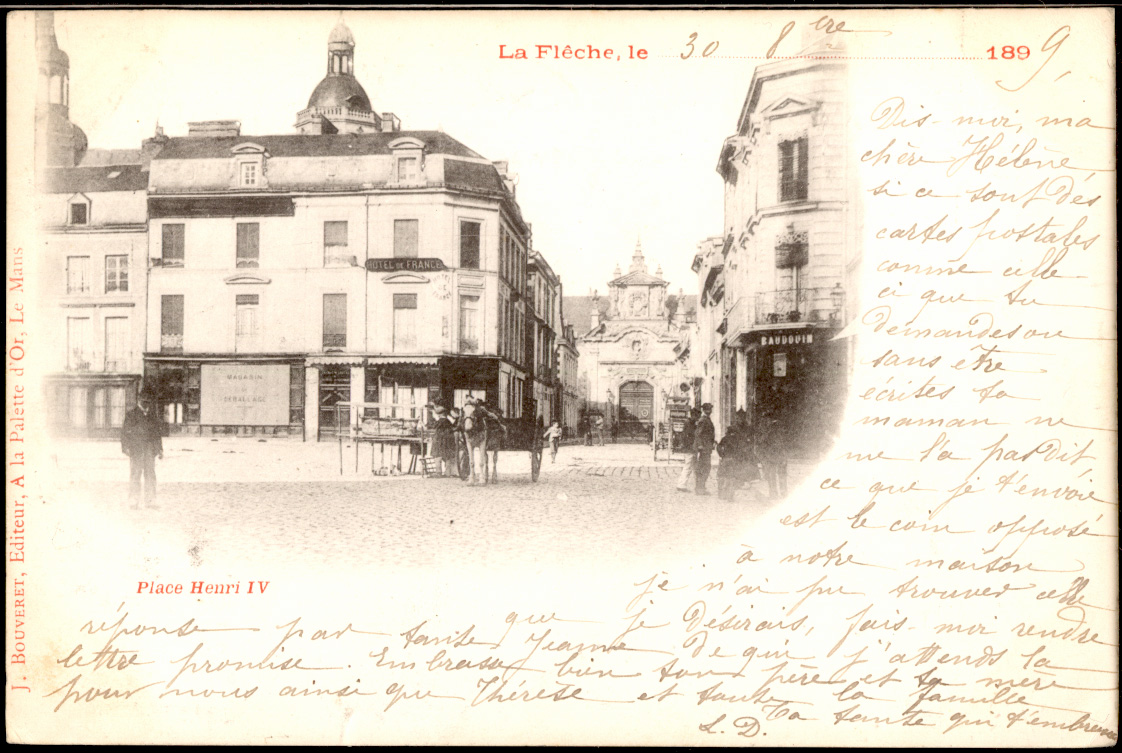 La Flêche, le 30 8bre 1899,
HOTEL DE FRANCE
BAUDOUIN
MAGASIN
DEBALLAGE
J. BOUVERET, Editeur, A la Palette d'Or, Le Mans
Place Henri IV
Dis-moi, ma
chère Hélène
si ce sont dés
cartes postales
comme celle
ci que tu
demandes ou
sans être
écrites ta
maman ne
me l'a pas dit
ce que je t'envoie
est le coin opposé
à notre maison
je n'ai pu trouver celle
que je désirais, fais-moi rendre
réponse par tante Jeanne de qui j'attends la
lettre promise. Embrasse bien ton père et ta mère
pour nous ainsi que Thérèse et toute la famille
Ta tante qui t'embrasse
L. D.